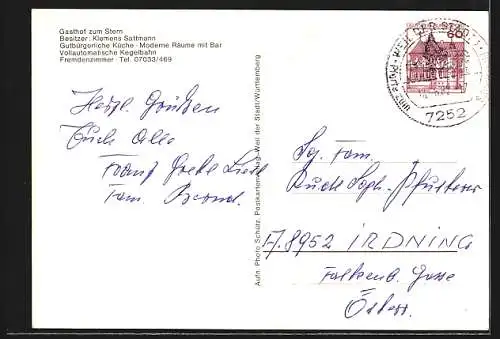 Gasthof zum Stern
Besitzer: Klemens Sattmann
Gutbürgerliche Küche · Moderne Räume mit Bar
Vollautomatische Kegelbahn
Fremdenzimmer · Tel. 07033/469
Herzl. Grüßen
Euch Alle
Franz Grete
Fam.
Aufn. Photo Schütz, Postkartenverlag, Weil der Stadt/Württemberg
60
WEIL DER STADT
7252
Sg. Fam.
Rud. Soph.
A. 8952 IRDNING
Falkenb. Gasse
Österr.